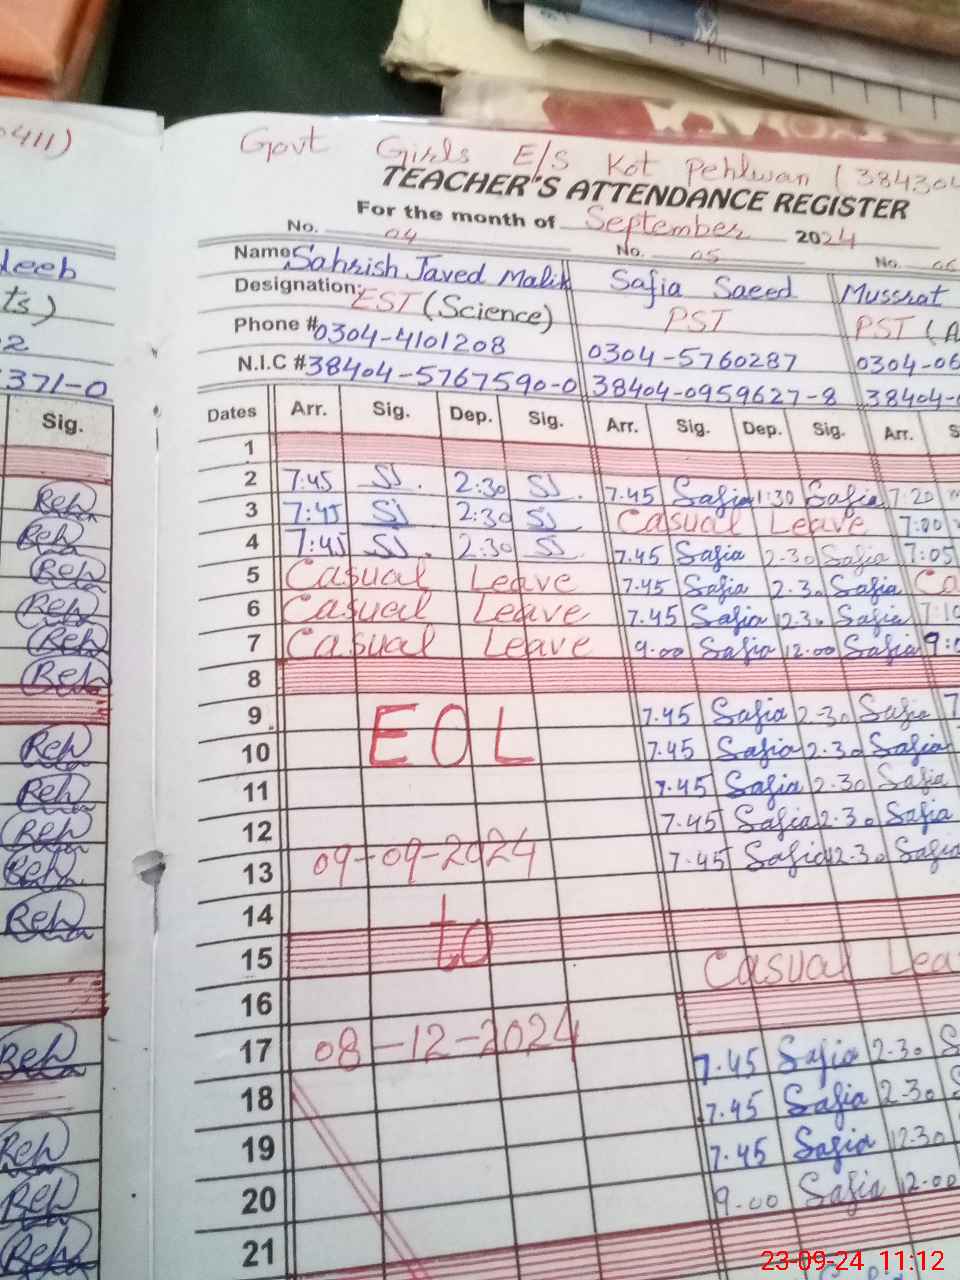 0411)
Govt Girls E/S Kot Pehlwan (384304
TEACHER'S ATTENDANCE REGISTER
For the month of September 2024
No. 04 No. 05 No. 06
Name Sahrish Javed Malik Safia Saeed Mussrat
Designation: EST (Science) PST PST (A
ts)
Phone # 0304-4101208 0304-5760287 0304-06
2
N.I.C # 38404-5767590-0 38404-0959627-8 38404-
371-0
Sig. Dates Arr. Sig. Dep. Sig. Arr. Sig. Dep. Sig. Arr. S
1
2 7:45 SJ. 2:30 SJ. 7.45 Safia 1:30 Safia 7:20
Reh 3 7:45 SJ 2:30 SJ Casual Leave 7:00
Reh 4 7:45 SJ. 2:30 SJ 7.45 Safia 2.30 Safia 7:05
Reh 5 Casual Leave 7.45 Safia 2.30 Safia Ca
Reh 6 Casual Leave 7.45 Safia 2.30 Safia 7:10
Reh 7 Casual Leave 9.00 Safia 12.00 Safia 9:0
Reh 8
9 7.45 Safia 2-30 Safia 7
Reh 10 EOL 7.45 Safia 2.30 Safia
Reh 11 7.45 Safia 2.30 Safia
Reh 12 7.45 Safia 2.30 Safia
Reh 13 09-09-2024 7.45 Safia 2.30 Safia
Reh 14
15 to Casual Lea
16
Reh 17 08-12-2024 7.45 Safia 2.30 S
18 7.45 Safia 2.30 S
Reh 19 7.45 Safia 12.30
Reh 20 9.00 Safia 12.00
Reh 21
23-09-24 11:12